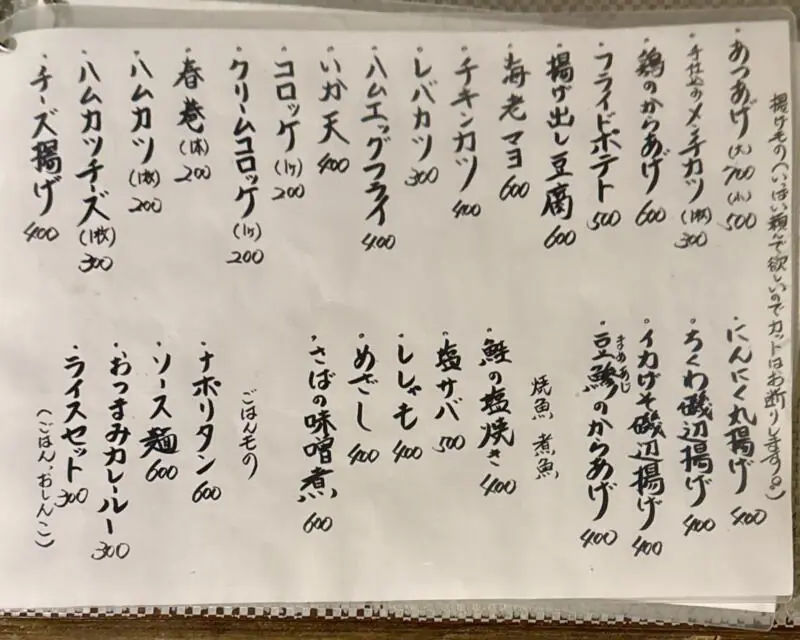 揚げもの(いっぱい頼んで欲しいのでカットはお断りします。)
・あつあげ(大)700(小)500
・手仕込みメンチカツ(1枚)300
・鶏のからあげ 600
・フライドポテト 500
・揚げ出し豆腐 600
・海老マヨ 600
・チキンカツ 400
・レバカツ 300
・ハムエッグフライ 400
・いか天 400
・コロッケ(1ヶ)200
・クリームコロッケ(1ヶ)200
・春巻(1本)200
・ハムカツ(1枚)200
・ハムカツチーズ(1枚)300
・チーズ揚げ 400
・にんにく丸揚げ 400
・ちくわ磯辺揚げ 400
・イカげそ磯辺揚げ 400
・豆鯵のからあげ 400
まめあじ
焼魚 煮魚
・鮭の塩焼き 400
・塩サバ 500
・ししゃも 400
・めざし 400
・さばの味噌煮 600
ごはんもの
・ナポリタン 600
・ソース麺 600
・おつまみカレールー 300
・ライスセット 300
(ごはん、おしんこ)